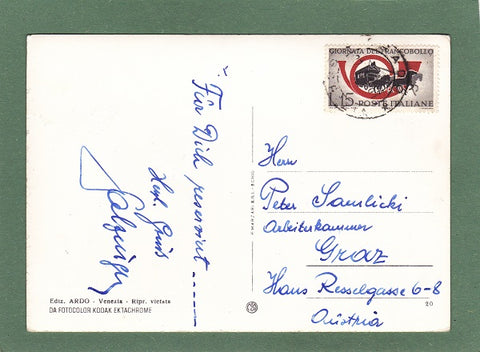 GIORNATA DEL FRANCOBOLLO
L.15 POSTE ITALIANE
"Für Dich reserviert
Herzl. Grüße
Herrn
Peter Samlicki
Arbeiterkammer
Graz
Hans Resselgasse 6-8
Austria
Ediz. ARDO - Venezia - Ripr. vietata
DA FOTOCOLOR KODAK EKTACHROME
20